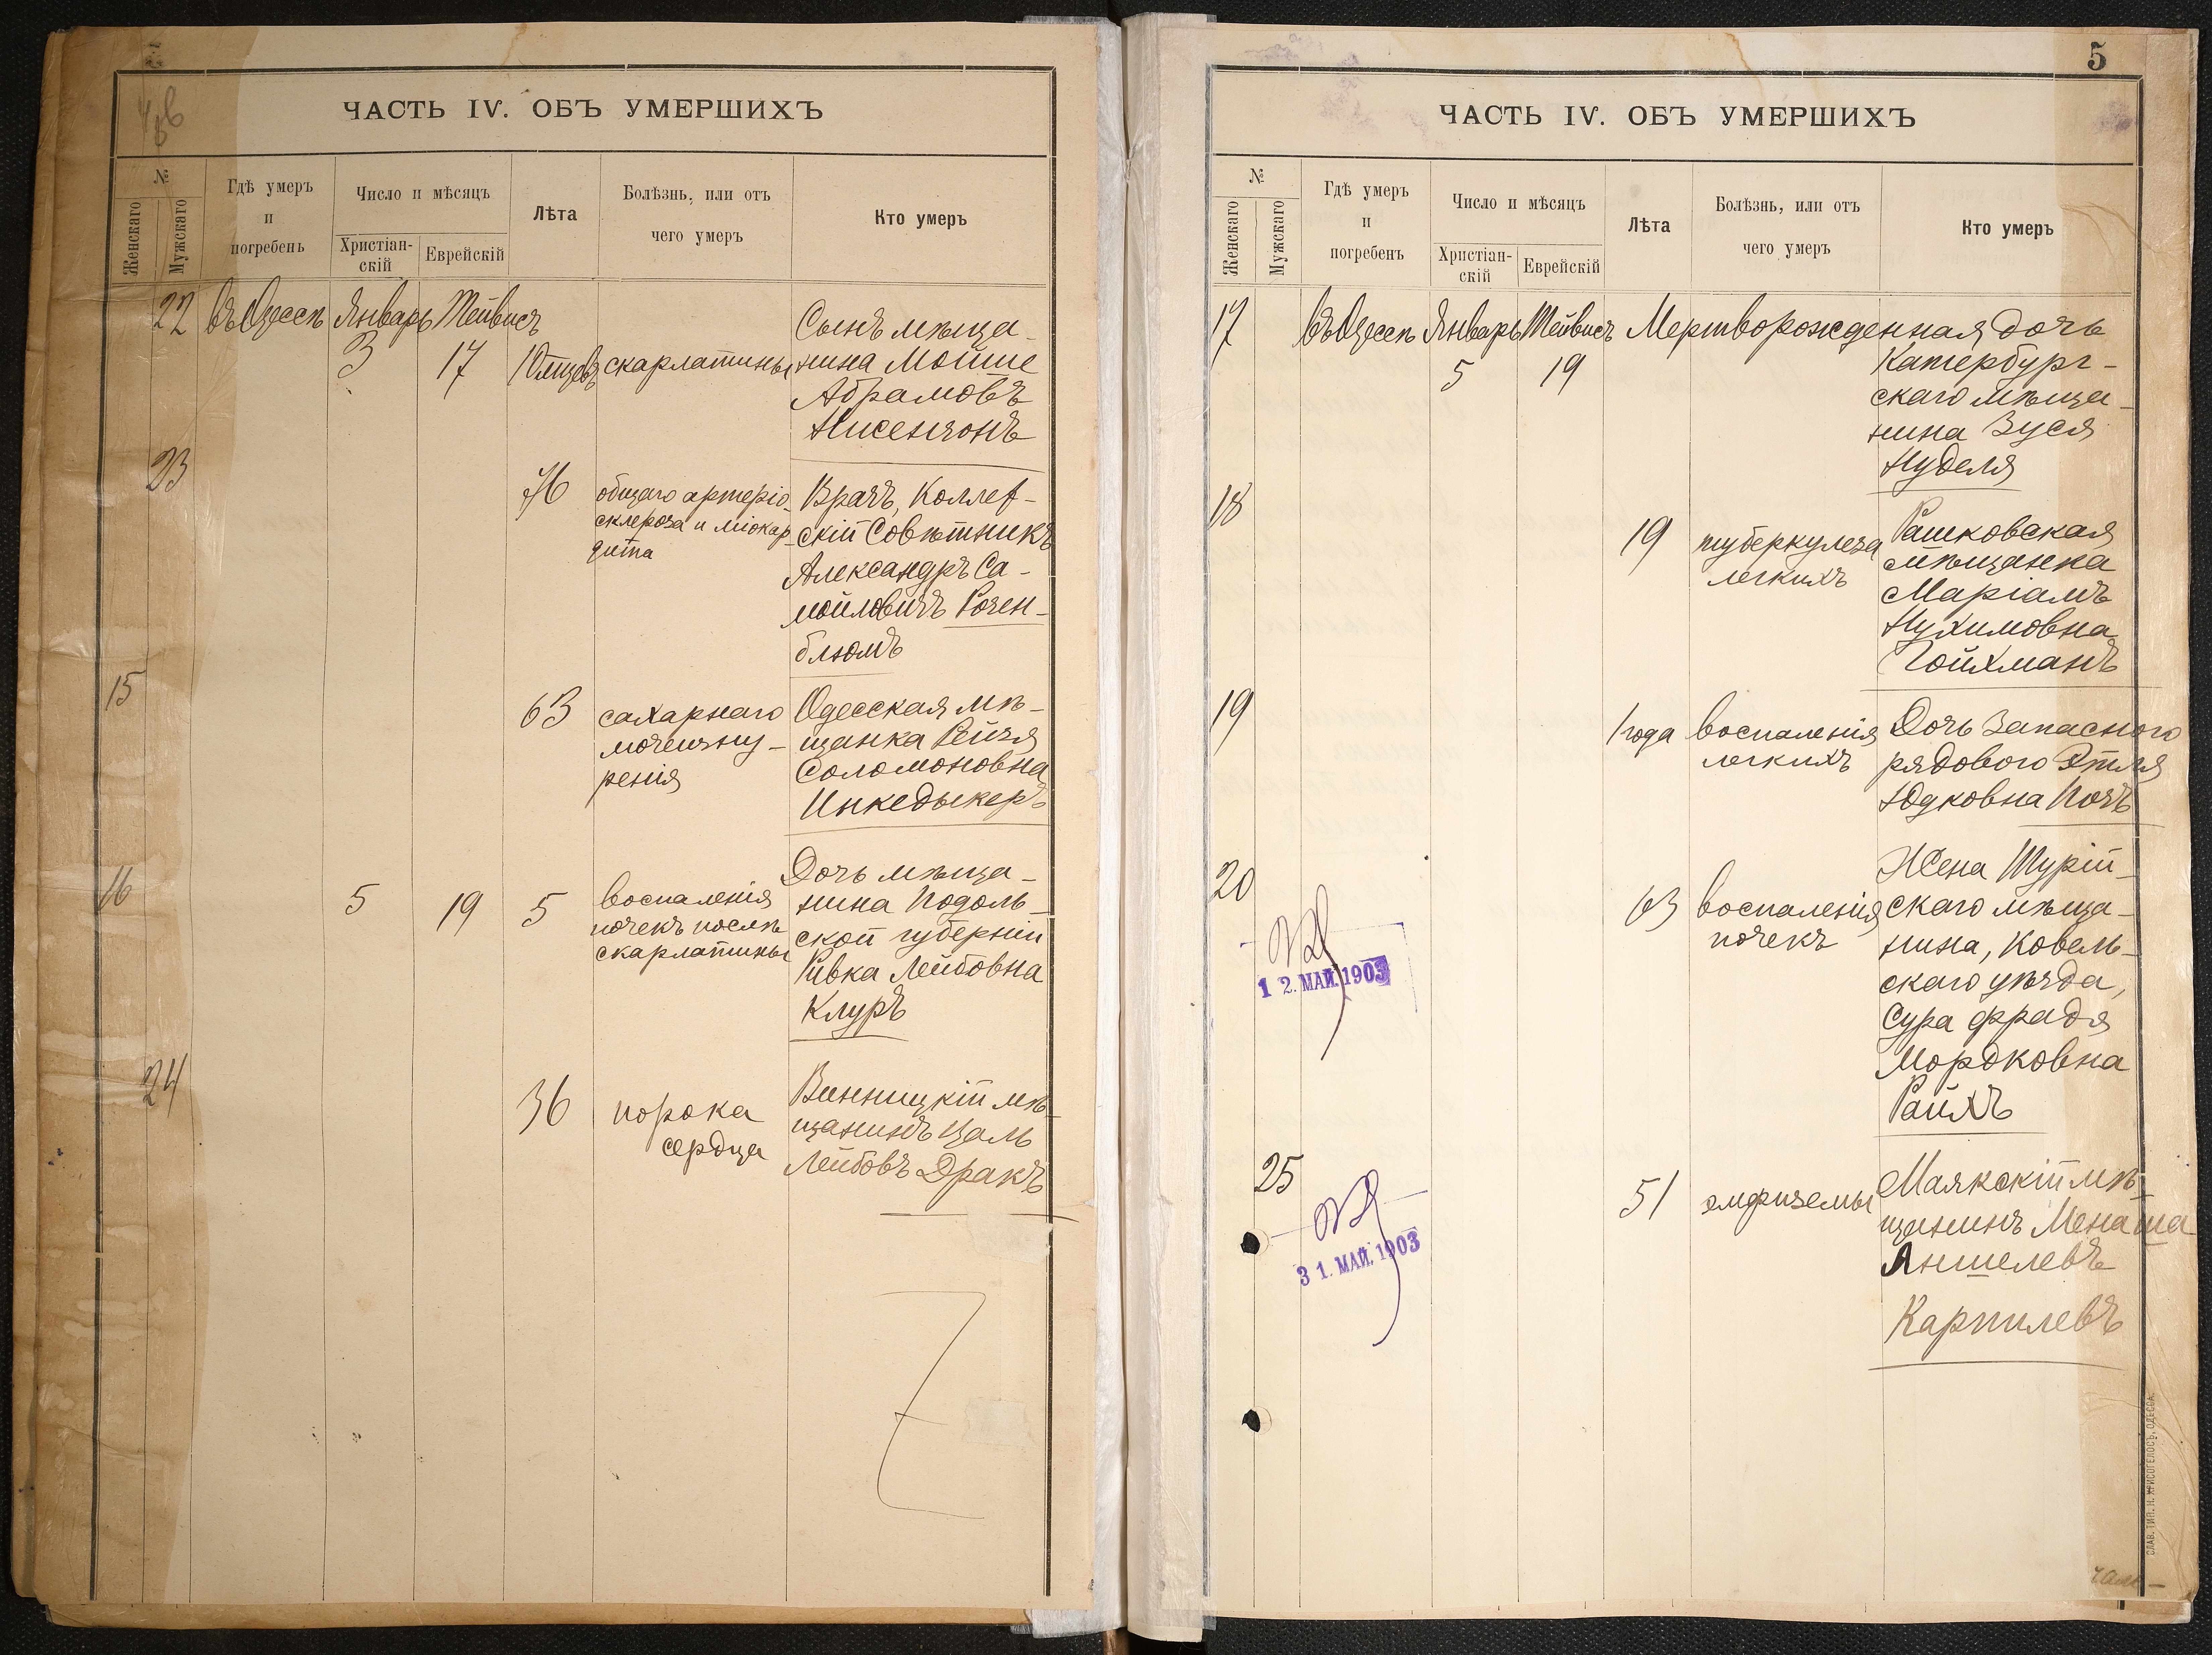 ЧАСТЬ IV. ОБЪ УМЕРШИХЪ
№
Женскаго
Мужскаго
Гдѣ умеръ
и
погребенъ
Число и мѣсяцъ
Христіан-
скій
Еврейскій
Лѣта
Болѣзнь, или отъ
чего умеръ
Кто умеръ
22 въ Одессѣ Январь Тейвисъ
3 17 10 мцевъ скарлатины
Сынъ мѣща-
нина Мойше
Абрамовъ
Нисензонъ
23
76
общаго артеріо-
склероза и міокар-
дита
Врачъ, Коллеж-
скій Совѣтникъ
Александръ Са-
мойловичъ Розен-
блюмъ
15
63
сахарнаго
мочеизну-
ренія
Одесская мѣ-
щанка Рейзя
Соломоновна
Инкедыкеръ
16
5 19 5
воспаленія
почекъ послѣ
скарлатины
Дочь мѣща-
нина Подоль-
ской губерніи
Ривка Лейбовна
Клуръ
24
36
порока
сердца
Винницкій мѣ-
щанинъ Цаль
Лейбовъ Дракъ
5
ЧАСТЬ IV. ОБЪ УМЕРШИХЪ
№
Женскаго
Мужскаго
Гдѣ умеръ
и
погребенъ
Число и мѣсяцъ
Христіан-
скій
Еврейскій
Лѣта
Болѣзнь, или отъ
чего умеръ
Кто умеръ
17 въ Одессѣ Январь Тейвисъ Мертворожденная дочь
5 19
Катербург-
скаго мѣща-
нина Зуся
Нуделя
18
19
туберкулеза
легкихъ
Рашковская
мѣщанка
Маріамъ
Нухимовна
Гойхманъ
19
1 года
воспаленія
легкихъ
Дочь Запасного
рядового Этля
Юдковна Позъ
20
63
воспаленія
почекъ
Жена Турій-
скаго мѣща-
нина, Ковель-
скаго уѣзда,
Сура Фрадя
Мордковна
Райхъ
12. МАЙ. 1903
25
51
эмфиземы
Маякскій мѣ-
щанинъ Менаша
Аншелевъ
Карпилевъ
31. МАЙ. 1903
СЛАВ. ТИП. Н. ХРИСОГЕЛОСЪ, ОДЕССА.